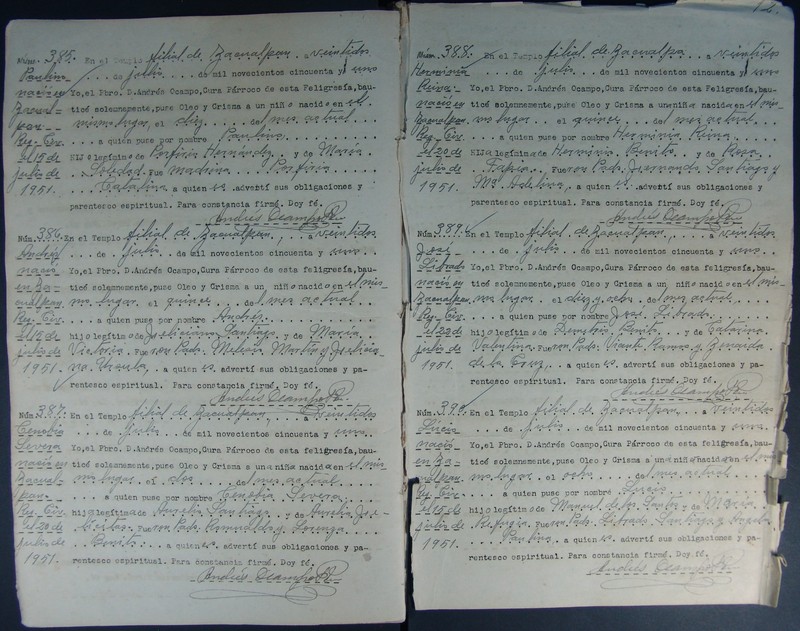 Núm. 385. En el Templo filial de Zacualpan a veintidos
Paulina de julio de mil novecientos cincuenta y uno
nació en Yo, el Pbro. D. Andrés Ocampo, Cura Párroco de esta Feligresía, bau-
Zacual- ticé solemnemente, puse Oleo y Crisma a un niñ nacid en el
pan mismo lugar, el diez del mes actual
Reg. Civ. a quien puse por nombre Paulina
el 15 de HIJ legítim de Porfirio Hernández y de María
julio de Soledad. Fue madrina Porfiria
1951. Catalina a quien advertí sus obligaciones y
parentesco espiritual. Para constancia firmé. Doy fé.
Andrés Ocampo R.
Núm. 386. En el Templo filial de Zacualpan, a veintidos
Andrés de julio de mil novecientos cincuenta y uno
nació Yo, el Pbro. D. Andrés Ocampo, Cura Párroco de esta feligresía, bau-
en Za- ticé solemnemente, puse Oleo y Crisma a un niño nacido en el mis-
cualpan mo lugar el quince del mes actual
Reg. Civ. a quien puse por nombre Andrés
hijo legítimo de Feliciano Santiago y de María
julio de Victoria Fueron Pads. Melecio Martín y
1951. a quien es. advertí sus obligaciones y pa-
rentesco espiritual. Para constancia firmé. Doy fé.
Andrés Ocampo R.
Núm. 387. En el Templo filial de Zacualpan a veintidos
Cenobia de julio de mil novecientos cincuenta y uno
Severa Yo, el Pbro. D. Andrés Ocampo, Cura Párroco de esta feligresía, bau-
nació en ticé solemnemente, puse Oleo y Crisma a una niña nacida en el mis-
Zacual- mo lugar el dos del mes actual
pan. a quien puse por nombre Cenobia Severa
Reg. Civ. hija legítima de Aurelio Santiago y de
el 20 de Fueron Pads. Romualdo y Lorenza
julio de Benito a quien es. advertí sus obligaciones y pa-
1951. rentesco espiritual. Para constancia firmé. Doy fé.
Andrés Ocampo R.
12.
Núm. 388. En el Templo filial de Zacualpa a veintidos
Herminia de julio de mil novecientos cincuenta y uno
Reina Yo, el Pbro. D. Andrés Ocampo, Cura Párroco de esta Feligresía, bau-
nació en ticé solemnemente, puse Oleo y Crisma a una niña nacida en el mis-
Zacualpan mo lugar el quince del mes actual
Reg. Civ. a quien puse por nombre Herminia Reina
el 20 de HIJa legítima de Herminio Benito y de Rosa
julio de Fueron Pads. Fernando Santiago y
1951. Ma. Adelina, a quien es advertí sus obligaciones y
parentesco espiritual. Para constancia firmé. Doy fé.
Andrés Ocampo R.
Núm. 389. En el Templo filial de Zacualpan, a veintidos
José de julio de mil novecientos cincuenta y uno
Librado Yo, el Pbro. D. Andrés Ocampo, Cura Párroco de esta feligresía, bau-
nació en ticé solemnemente, puse Oleo y Crisma a un niño nacido en el mis-
Zacualpan mo lugar el diez y ocho del mes actual
Reg. Civ. a quien puse por nombre José Librado
el 20 de hijo legítimo de Demetrio Benito y de Catarina
julio de Valentina Fueron Pads. Vicente Ramos y Zenaida
1951. de la Cruz, a quien es. advertí sus obligaciones y pa-
rentesco espiritual. Para constancia firmé. Doy fé.
Andrés Ocampo R.
Núm. 390. En el Templo filial de Zacualpan a veintidos
Lucia de julio de mil novecientos cincuenta y uno
nació Yo, el Pbro. D. Andrés Ocampo, Cura Párroco de esta feligresía, bau-
en Za- ticé solemnemente, puse Oleo y Crisma a una niña nacida en el mis-
cualpan mo lugar el ocho del mes actual
Reg. Civ. a quien puse por nombre Lucia
el 15 de hija legítima de Manuel de los Santos y de María
julio de Refugio Fueron Pads. Librado Santiago y
1951. Paulina a quien es. advertí sus obligaciones y pa-
rentesco espiritual. Para constancia firmé. Doy fé.
Andrés Ocampo R.